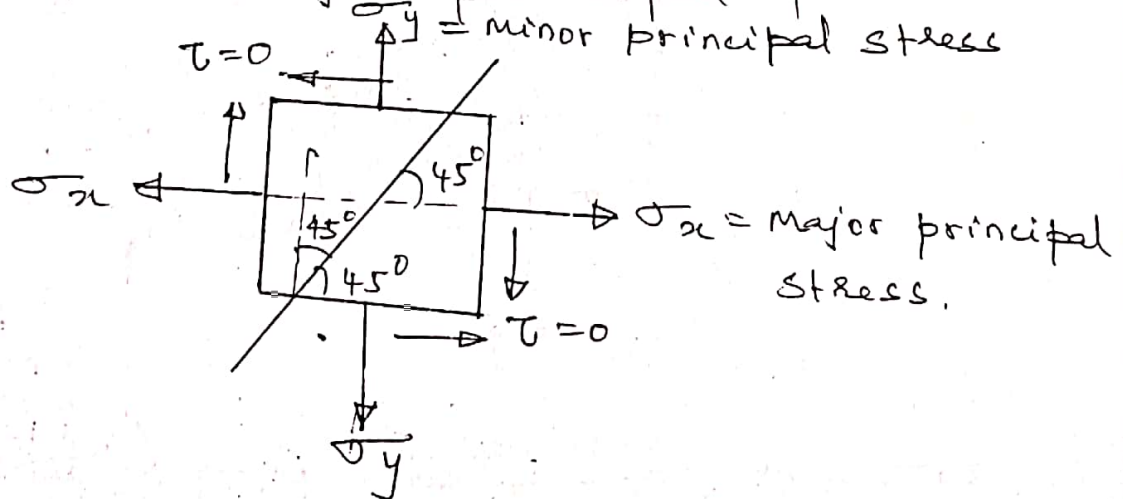 σy = Minor principal stress
τ=0
45°
σx
σx = Major principal
stress.
45°
45°
τ=0
σy